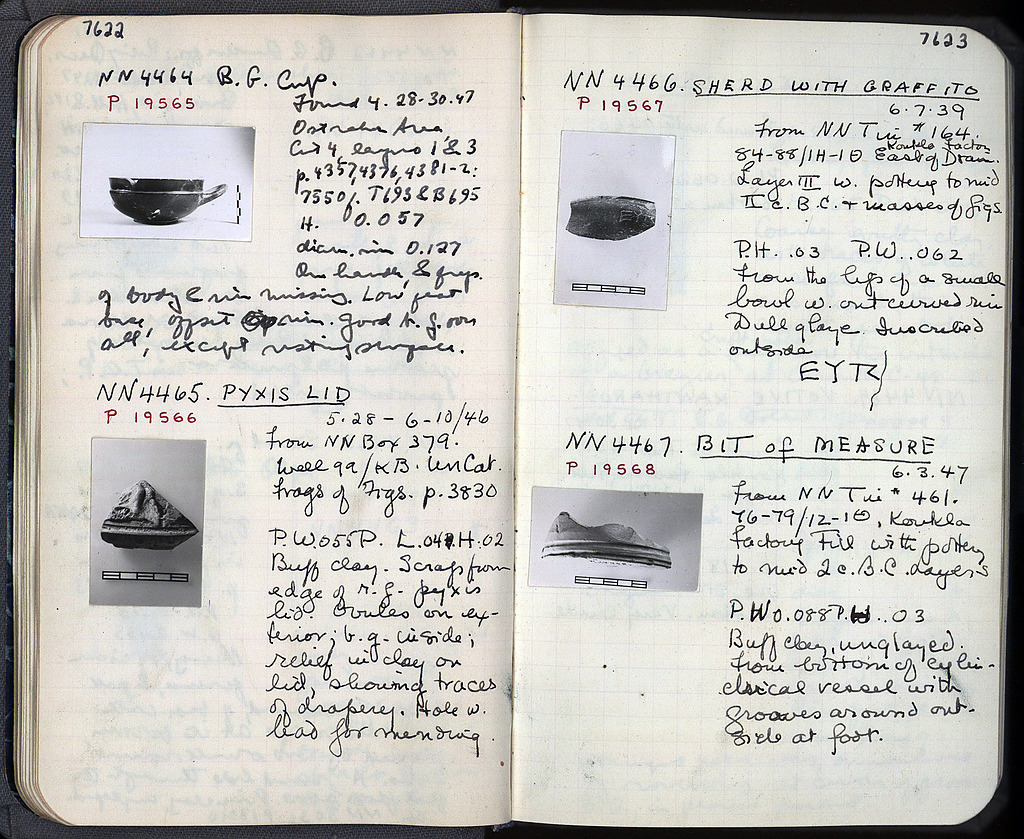 7622
NN4464 B.G. Cup.
P 19565
Found 4.28-30.47
Ostraka Area,
Cut 4, layers 1 & 3
p. 4357, 4376, 4381-2:
7550/. T693 & B695
H. 0.057
diam. rim 0.127
One handle, & frags.
of body & rim missing. Low feet
base, offset rim. Good b.g. over
all, except resting surface.
NN4465. PYXIS LID
P 19566
5.28 – 6-10/46
From NN Box 379.
Well 99/KB. UnCat.
frags of Figs. p. 3830
P.W. 055 P. L. 04 H. 02
Buff clay. Scrap from
edge of r.g. pyxis
lid. Ovules on ex-
terior; b.g. inside;
relief in clay on
lid, showing traces
of drapery. Hole w.
lead for mending.
7623
NN 4466. SHERD WITH GRAFFITO
P 19567
6.7.39
From NN Tin # 164.
Koukla Factory
84-88/1H-1Θ East of Drain.
Layer III w. pottery to mid
II c. B.C. + masses of figs.
P.H. .03 P.W. .062
From the lip of a small
bowl w. outcurved rim
Dull glaze. Inscribed
outside
ΕΥΤ
NN4467. BIT of MEASURE
P 19568
6.3.47
From NN Tin # 461.
76-79/12-1Θ, Koukla
Factory Fill with pottery
to mid 2 c. B.C. Layer
P.W. 0.088 P.H. .03
Buff clay, unglazed.
From bottom of cylin-
drical vessel with
grooves around out-
side at foot.